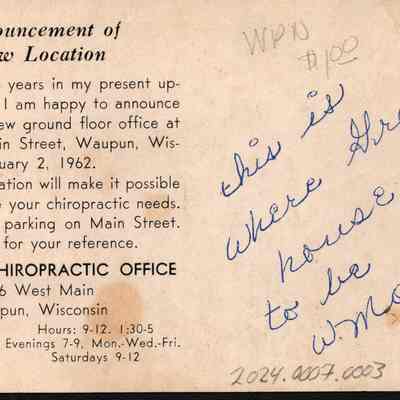 ouncement of
w Location
years in my present up-
I am happy to announce
ew ground floor office at
in Street, Waupun, Wis-
uary 2, 1962.
ation will make it possible
e your chiropractic needs.
parking on Main Street.
for your reference.
CHIROPRACTIC OFFICE
6 West Main
pun, Wisconsin
Hours: 9-12. 1:30-5
Evenings 7-9, Mon.-Wed.-Fri.
Saturdays 9-12
WPN
$1.00
this is
where Gre
house
to be
W. Ma
2024.0007.0003